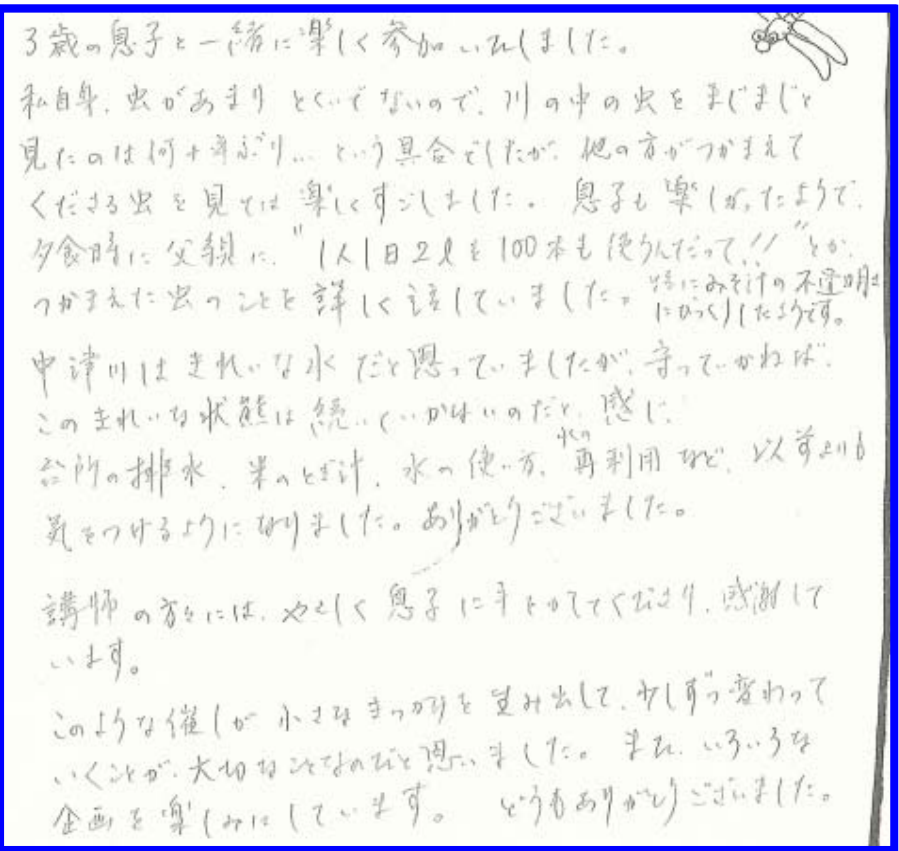 3歳の息子と一緒に楽しく参加いたしました。
私自身、虫があまりとくいでないので、川の中の虫をまじまじと
見たのは何十年ぶり…という具合でしたが、他の方がつかまえて
くださる虫を見ては楽しくすごしました。息子も楽しかったようで、
夕食時に父親に、"1人1日2ℓを100本も使うんだって!!"とか、
つかまえた虫のことを詳しく話していました。特にみそ汁の不透明さ
にびっくりしたようです。
中津川はきれいな水だと思っていましたが、守っていかねば、
このきれいな状態は続いていかないのだと、感じ、
台所の排水、米のとぎ汁、水の使い方、水の再利用など、以前よりも
気をつけるようになりました。ありがとうございました。
講師の方々には、やさしく息子に手をかしてくださり、感謝して
います。
このような催しが小さなきっかけを生み出して、少しずつ変わって
いくことが、大切なことなのだと思いました。また、いろいろな
企画を楽しみにしています。 どうもありがとうございました。